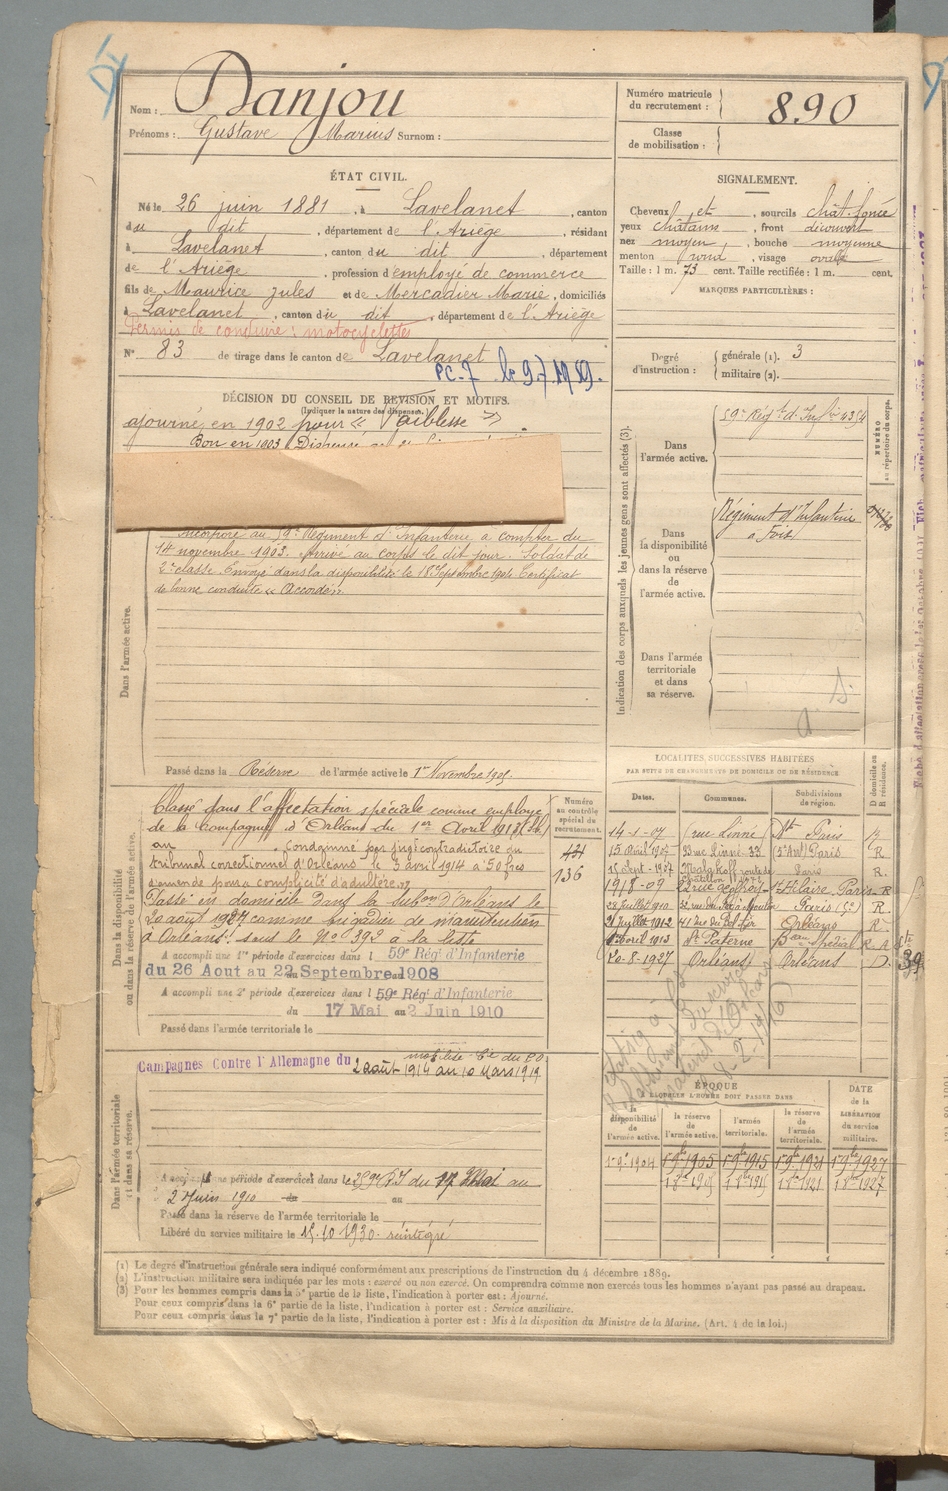 Nom : Danjou
Prénoms : Gustave Marius Surnom :
Numéro matricule du recrutement : 890
Classe de mobilisation :
ÉTAT CIVIL.
Né le 26 juin 1881, à Lavelanet, canton
du dit, département de l'Ariège, résidant
à Lavelanet, canton du dit, département
de l'Ariège, profession d'employé de commerce
fils de Maurice Jules et de Mercadier Marie, domiciliés
à Lavelanet, canton du dit, département de l'Ariège
Permis de conduire : motocyclettes
N° 83 de tirage dans le canton de Lavelanet
PC.7 le 9.7.19.
SIGNALEMENT.
Cheveux et, sourcils chât. foncé
yeux châtains, front découvert
nez moyen, bouche moyenne
menton rond, visage ovale
Taille : 1 m. 73 cent. Taille rectifiée : 1 m. cent.
MARQUES PARTICULIÈRES :
Degré d'instruction : générale (1). 3
militaire (2).
DÉCISION DU CONSEIL DE REVISION ET MOTIFS.
(Indiquer la nature des dispenses.)
ajourné en 1902 pour « Faiblesse »
Bon en 1903
Dans l'armée active.
incorporé au 59e Régiment d'Infanterie à compter du
14 novembre 1903. Arrivé au corps le dit jour. Soldat de
2e classe. Envoyé dans la disponibilité le 18 Septembre 1904. Certificat
de bonne conduite « Accordé ».
Passé dans la Réserve de l'armée active le 1er Novembre 1905.
Indication des corps auxquels les jeunes gens sont affectés (3).
NUMÉRO au répertoire du corps.
Dans l'armée active.
59e Régt d'Infie 4354
Dans la disponibilité ou dans la réserve de l'armée active.
Régiment d'Infanterie
à Foix
Dans l'armée territoriale et dans sa réserve.
Dans la disponibilité ou dans la réserve de l'armée active.
Numéro au contrôle spécial du recrutement.
136
Classé dans l'affectation spéciale comme employé
de la Compagnie d'Orléans du 1er Avril 1913
Condamné par jugt contradictoire du
tribunal correctionnel d'Orléans le 3 avril 1914 à 50 frcs
d'amende pour « complicité d'adultère »
Passé en domicile dans la subon d'Orléans le
20 août 1927 comme brigadier de manutention
à Orléans. sous le N° 392 à la liste
A accompli une 1re période d'exercices dans l 59e Régt d'Infanterie
du 26 Aout au 22 Septembre 1908
A accompli une 2e période d'exercices dans l 59e Régt d'Infanterie
du 17 Mai au 2 Juin 1910
Passé dans l'armée territoriale le
LOCALITÉS SUCCESSIVES HABITÉES
PAR SUITE DE CHANGEMENTS DE DOMICILE OU DE RÉSIDENCE
Dates. Communes. Subdivisions de région. D domicile ou R résidence.
14-1-07 Paris R
15 Avril 1907 33 rue Linné 33 (5e Art) Paris R
1907 Malakoff route de Châtillon Paris R.
19-8-09 Paris R
28 Juillet 1910 Paris R
Juillet 1912 41 rue du Belfor Orléans R
Avril 1913 St Paterne R A
20-8-1927 Orléans Orléans D.
Dans l'armée territoriale et dans sa réserve.
Campagnes Contre l'Allemagne du
mobilisé Cie du PO
2 août 1914 au 10 Mars 1919
A accompli une période d'exercices dans le 59e RI du 17 Mai au
2 Juin 1910 du au
Passé dans la réserve de l'armée territoriale le
Libéré du service militaire le 15.10 1930. réintégré
ÉPOQUE
À LAQUELLE L'HOMME DOIT PASSER DANS
la disponibilité de l'armée active. la réserve de l'armée active. l'armée territoriale. la réserve de l'armée territoriale. DATE de la LIBÉRATION du service militaire.
1er 9e 1904 1er 9bre 1905 1er 9bre 1915 1er 9bre 1921 1er 9bre 1927
1 8bre 1905 1 8bre 1915 1 8bre 1921 1 8bre 1927
(1) Le degré d'instruction générale sera indiqué conformément aux prescriptions de l'instruction du 4 décembre 1889.
(2) L'instruction militaire sera indiquée par les mots : exercé ou non exercé. On comprendra comme non exercés tous les hommes n'ayant pas passé au drapeau.
(3) Pour les hommes compris dans la 5e partie de la liste, l'indication à porter est : Ajourné.
Pour ceux compris dans la 6e partie de la liste, l'indication à porter est : Service auxiliaire.
Pour ceux compris dans la 7e partie de la liste, l'indication à porter est : Mis à la disposition du Ministre de la Marine. (Art. 4 de la loi.)